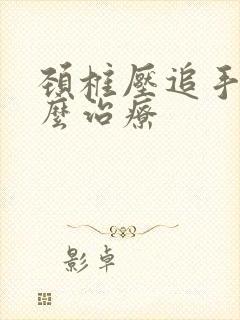 頚椎壓追手
麼治療
影卓